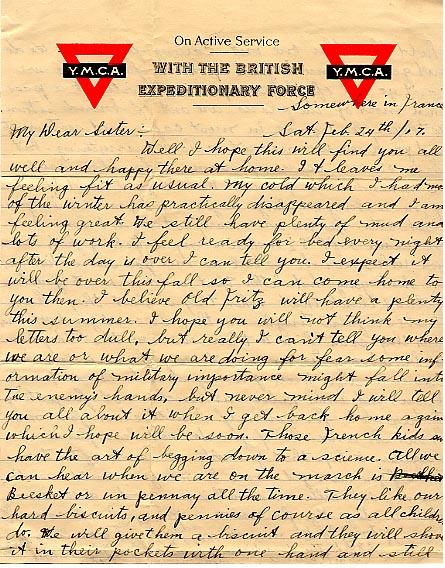 On Active Service
Y.M.C.A. WITH THE BRITISH Y.M.C.A.
EXPEDITIONARY FORCE
Somewhere in France
My Dear Sister:- Sat. Feb. 24th/17.
Well I hope this will find you all
well and happy there at home. It leaves me
feeling fit as usual. My cold which I had mo
of the winter has practically disappeared and I am
feeling great. We still have plenty of mud and
lots of work. I feel ready for bed every night
after the day is over I can tell you. I expect it
will be over this fall so I can come home to
you then. I believe Old Fritz will have a plenty
this summer. I hope you will not think my
letters too dull, but really I can't tell you where
we are or what we are doing for fear some inf
ormation of military importance might fall into
the enemy's hands, but never mind I will tell
you all about it when I get back home again
which I hope will be soon. Those French kids
have the art of begging down to a science. All we
can hear when we are on the march is
Beesket or un pennay all the time. They like our
hard biscuits, and pennies of course as all childr
do. We will give them a biscuit and they will shov
it in their pockets with one hand and still